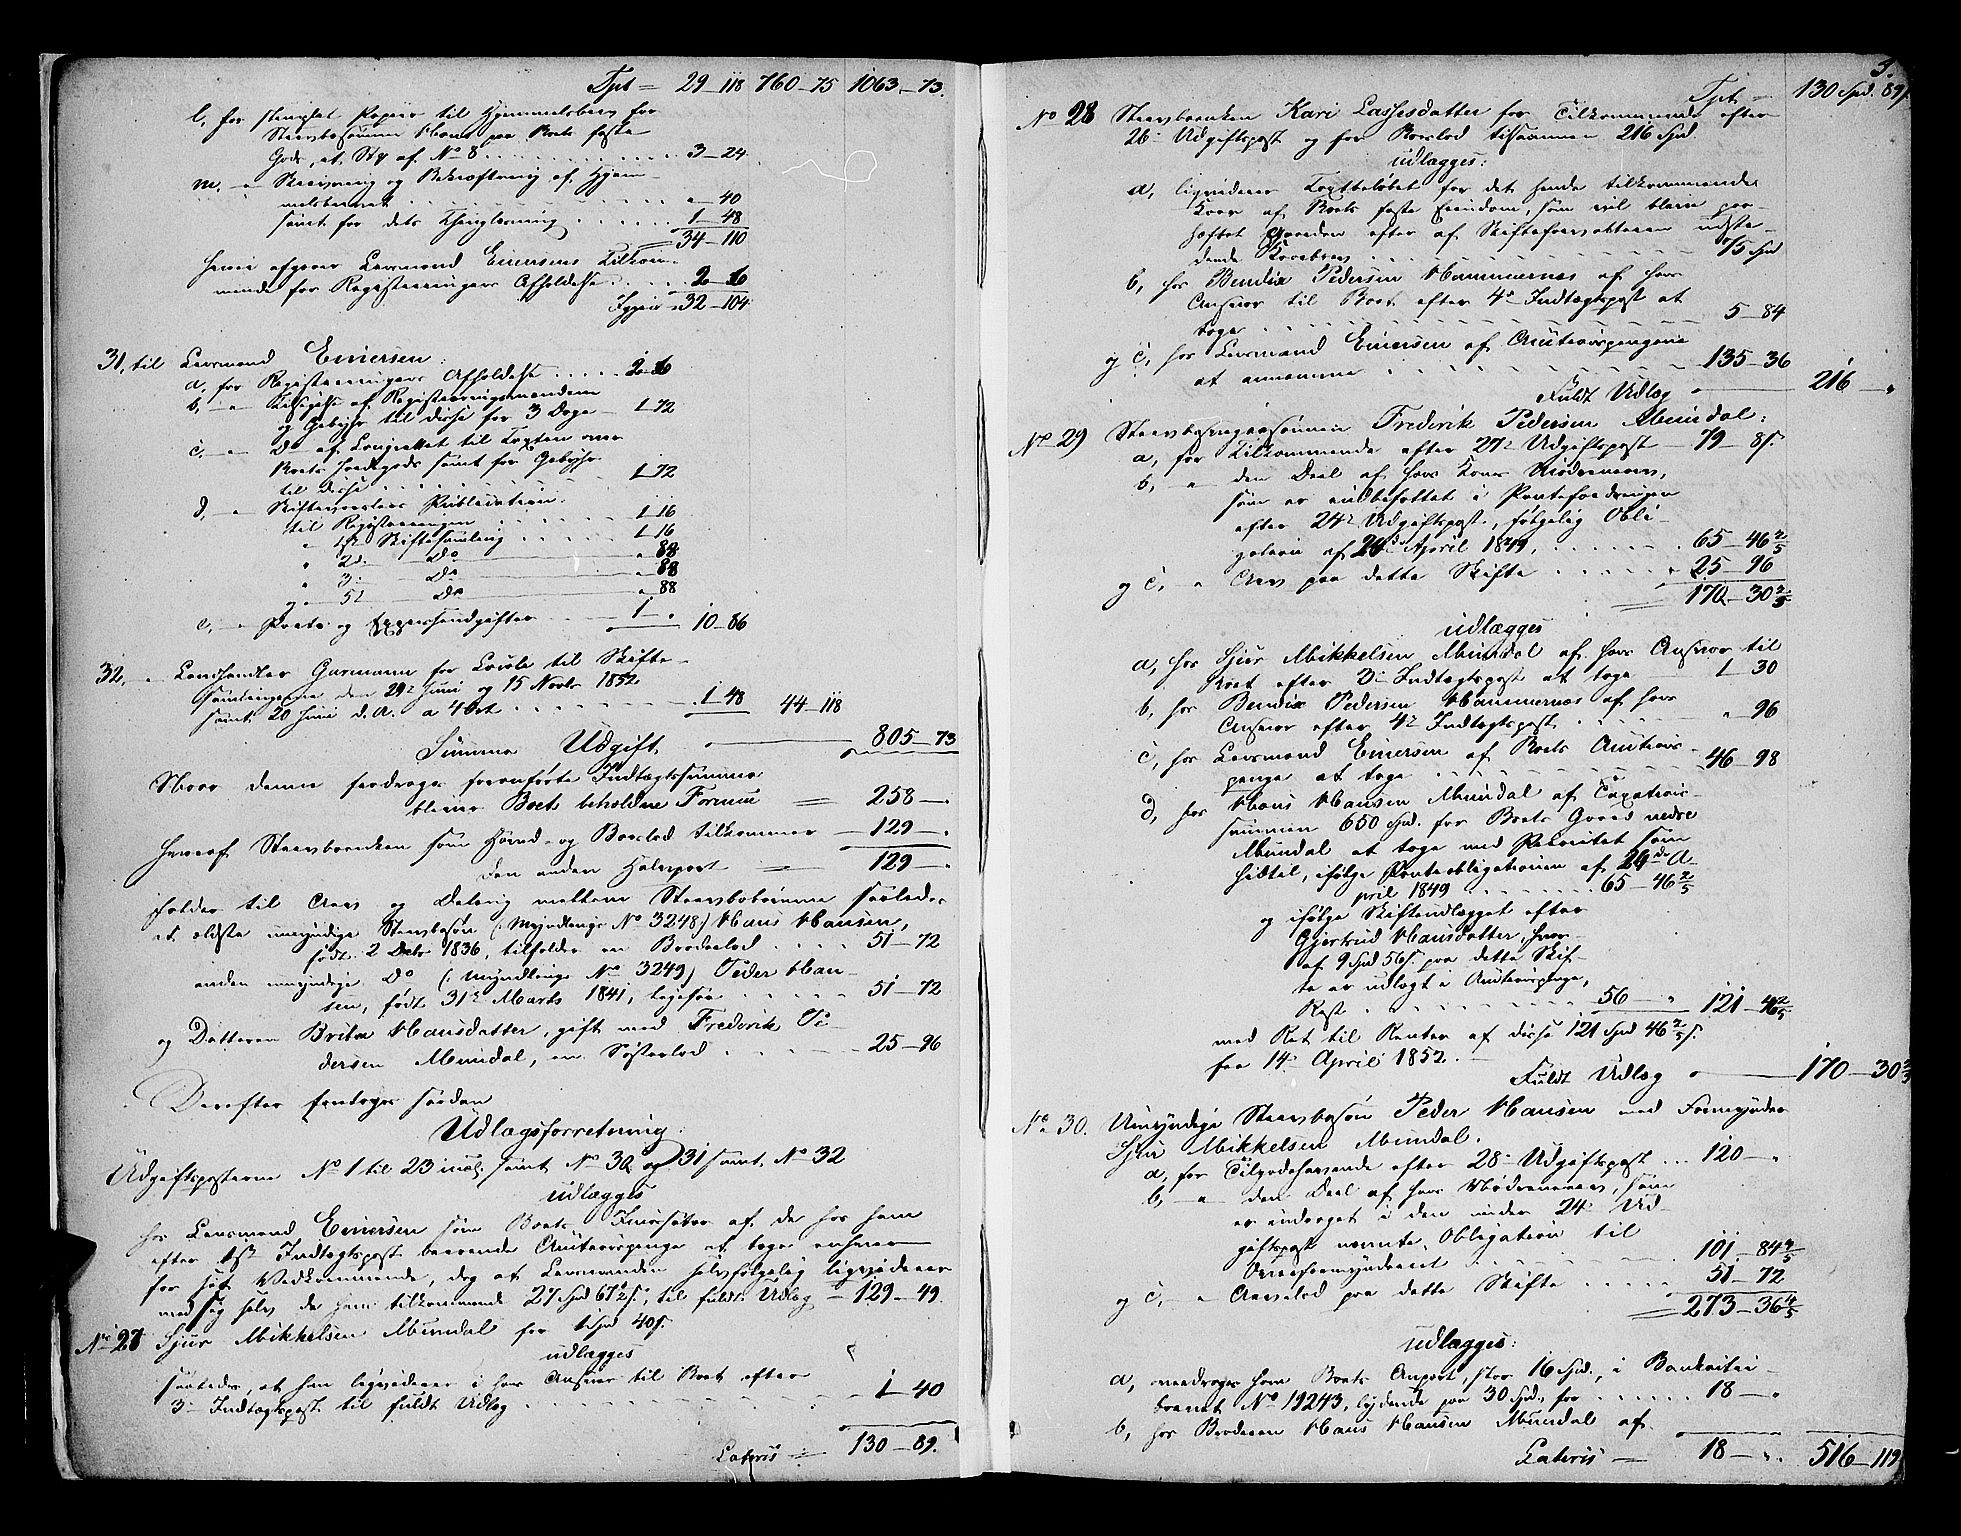 Tpt = 29-118 760-75 1063-73.
l, for stemplet Papier til Hjemmelsbrev for
Stervbosønnen Hans paa Boets faste
Gods, at Stk af No 8 . . . . . 3-24
m. - " Skrivning og Bekræftning af Hjem-
melsbrevet . . . . . " - 40
samt for dets Thinglæsning . . . . . 1-48
34-110
Herfra afgaaer Lensmand Einersens Tilkom-
mende for Registreringens Afholdelse . . . . 2-6
Igjen 32-104
31, til Lensmand Einersen:
a, for Registreringens Afholdelse . . . . . 2-6
b, - " Tilsigelse af Registreringsmændene
og Gebyhr til disse for 3 Dage - 1-72
c, - " Do af Laugrettet til Taxten over
Boets Jordegods samt for Gebyhr
til disse . . . . . 1-72
d, - " Skiftevarslers Publication:
til Registreringen . . . . . 1-16
" 1ste Skiftesamling . . . . . 1-16
" 2. Do " 88
" 3. Do " 88
og - 5t Do " 88
e, - " Porto og Expressudgifter 1- " 10-86
32, - " Landhandler Garmann for Locale til Skifte-
samlingerne den 29t Juni og 15 Novbr 1852
samt 20 Juni d. A. a 4 Ort . . . . . 1-48 44-118
Summa Udgift 805-73
Naar denne fradrages foranførte Indtægtssumma
bliver Boets beholdne Formue = 258- "
Heraf Stervboenken som Hoved- og Boeslod tilkommer - 129- "
Den anden Halvpart = 129- "
falder til Arv og Deling mellem Stervbobørnene saaledes
at ældste umyndige Stervbosøn (Myndlings No 3248) Hans Hansen,
født 2 Decbr 1836, tilfalder en Broderlod . . . . 51-72
anden umyndige Do (Myndlings No 3249) Peder Han-
sen, født 31t Marts 1841, ligesaa . . . . . 51-72
og Datteren Britha Hansdatter, gift med Frederik Pe-
dersen Mundal, en Søsterlod . . . . . 25-96
Derefter foretoges saadan
Udlægsforretning:
Udgiftsposterne No 1 til 23 incl, samt No 30 og 31 samt No 32
udlægges
hos Lensmand Einersen som Boets Incassator af de hos ham
efter 1ste Indtægtspost beroende Auctionspenge at tage enhver
for sit Vedkommende, dog at Lensmanden selvfølgelig liqviderer
med sig selv de ham tilkommende 27 Spd 67½ s, til fuldt Udlæg - 129-49
No 27 Sjur Mikkelsen Mundal for 1 Spd 40 s.
udlægges
saaledes, at han liqviderer i hans Ansvar til Boet efter
3- Indtægtspost til fuldt Udlæg . . . . . 1-40
Lateris = 130-89.
3.
Tpt = 130 Spd. 89 s.
No 28 Stervboenken Kari Lassesdatter for Tilkommende efter
26- Udgiftspost og for Boeslod tilsammen 216 Spd
udlægges:
a, liqviderer Taxtbeløbet for det hende tilkommende
Kaar af Boets faste Eiendom, som vil blive paa-
heftet Gaarden efter af Skifteforvalteren udste-
dende Kaarbrev . . . . . 75 Spd
b, hos Bendix Pedersen Hammernæs af hans
Ansvar til Boet efter 4de Indtægtspost at
tage . . . . . 5-84
og c, hos Lensmand Einersen af Auctionspengene
at annamme . . . . . 135-36
Fuldt Udlæg 216 "
No 29 Stervbosvigersønnen Frederik Pedersen Mundal:
a, for Tilkommende efter 27de Udgiftspost - 79-8 s.
b, - " den Deel af hans Kones Mødrenearv,
som er indbefattet i Pantefordringen
efter 24de Udgiftspost, følgelig Obli-
gation af 24de April 1849, . . . . . 65-46 2/5
og c, - " Arv paa dette Skifte . . . . . 25-96
170-30 2/5
udlægges
a, hos Sjur Mikkelsen Mundal af hans Ansvar til
Boet efter 3- Indtægtspost at tage 1-30
b, hos Bendix Pedersen Hammernæs af hans
Ansvar efter 4de Indtægtspost . . . . . " - 96
c, hos Lensmand Einersen af Boets Auctions-
penge at tage . . . . . 46-98
d, hos Hans Hansen Mundal af Taxations-
summen 650 Spd. for Boets Gaard nedre
Mundal at tage med Prioritet som
hidtil, ifølge Panteobligationen af 24de A-
pril 1849 . . . . . 65-46 2/5
og ifølge Skifteudlægget efter
Gjertrud Hansdatter, hvor-
af 9 Spd 56 s. paa dette Skif-
te er udlagt i Auctionspenge,
Rest . . . . . 56- " 121-46 2/5
med Ret til Renter af disse 121 Spd 46 2/5 s.
fra 14- April 1852. -
Fuldt Udlæg 170-30 2/5
No 30. Umyndige Stervbosøn Peder Hansen med Formynder
Sjur Mikkelsen Mundal.
a, for Tilgodehavende efter 28- Udgiftspost . . . 120- "
b, - " den Deel af hans Mødrenearv, som
er indraget i den under 24- Ud-
giftspost nævnte Obligation til
Overformynderiet . . . . . 101-84 4/5
og c, - " Arvelod paa dette Skifte . . . . . 51-72
273-36 4/5
udlægges:
a, overdrages ham Boets Anpart, stor 16 Spd., i Bankactie-
brevet No 19243, lydende paa 30 Spd, for . . . . . 18- "
b, hos Broderen Hans Hansen Mundal af
Lateris = 18- " . 516-119